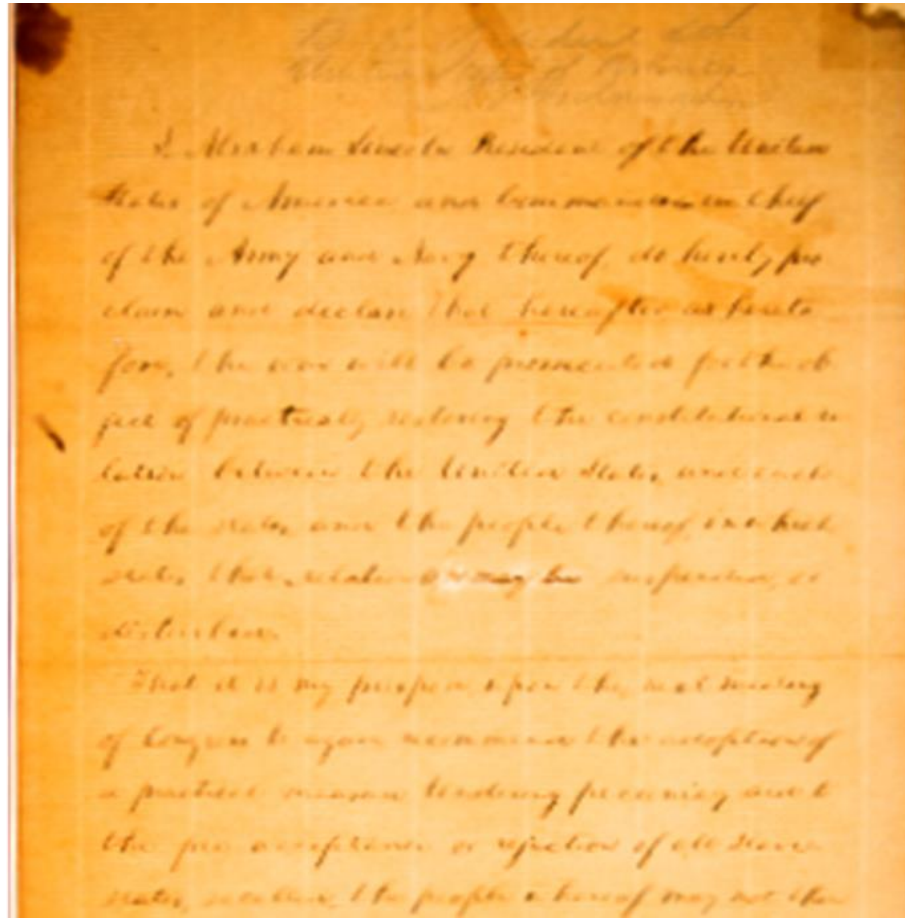 I Abraham Lincoln President of the United
States of America, and Commander-in-Chief
of the Army and Navy thereof, do hereby pro
claim and declare that hereafter as hereto
fore, the war will be prosecuted for the ob
ject of practically restoring the constitutional re
lation between the United States, and each
of the states, and the people thereof, in which
states that relation is, or may be suspended, or
disturbed.
That it is my purpose, upon the next meeting
of Congress to again recommend the adoption of
a practical measure tendering pecuniary aid to
the free acceptance or rejection of all slave
states, so called, the people whereof may not then